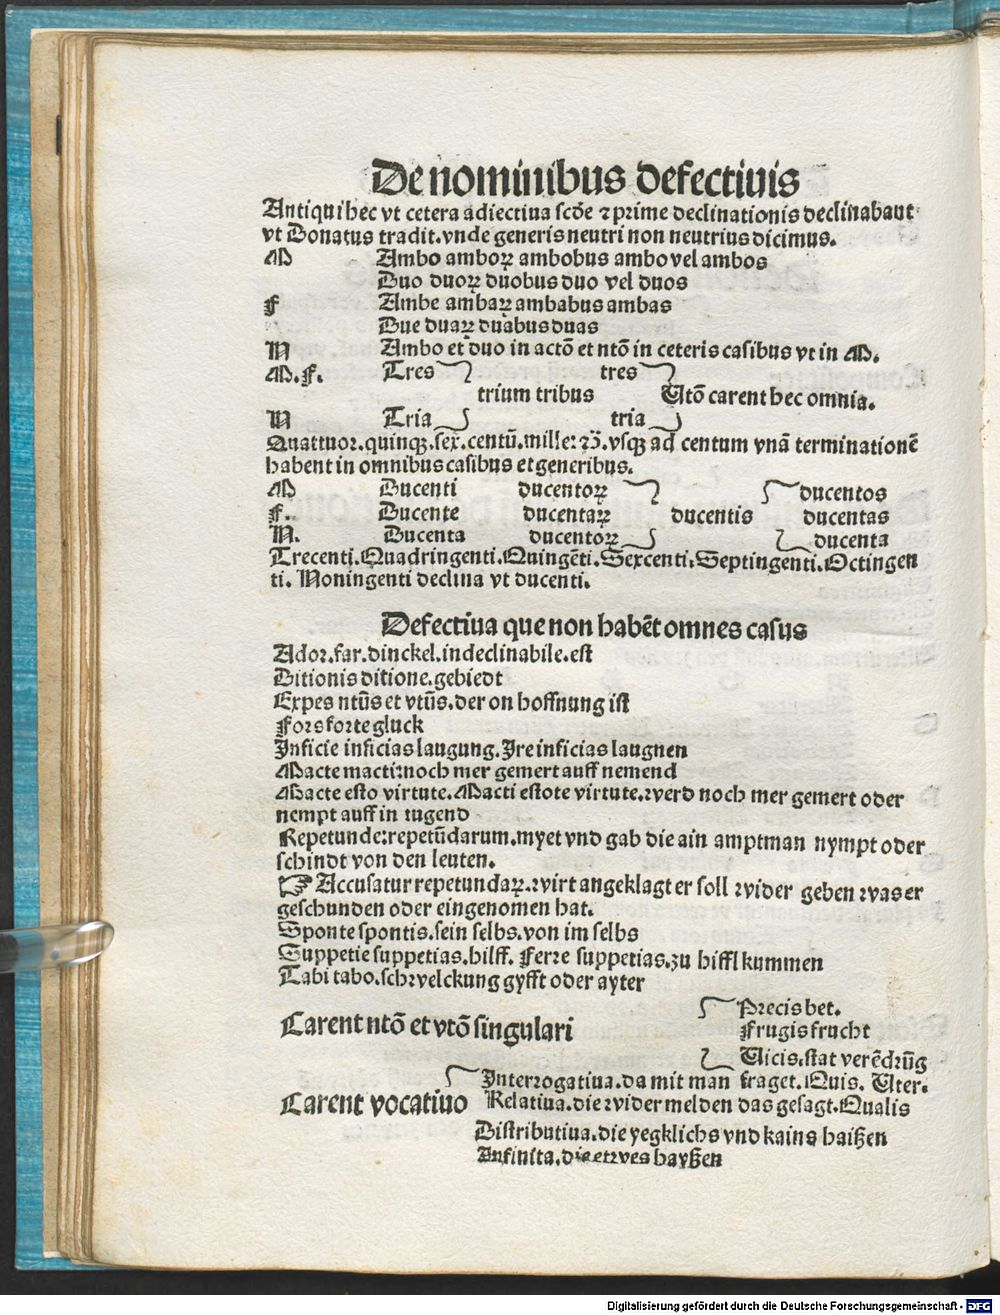 De nominibus defectiuis
Antiqui hec vt cetera adiectiua scde ⁊ prime declinationis declinabant
vt Donatus tradit. vnde generis neutri non neutrius dicimus.
M Ambo amboꝝ ambobus ambo vel ambos
Duo duoꝝ duobus duo vel duos
F Ambe ambaꝝ ambabus ambas
Due duaꝝ duabus duas
N Ambo et duo in actō et ntō in ceteris casibus vt in M.
M.F. Tres tres
trium tribus Utō carent hec omnia.
N Tria tria
Quattuor. quinqꝫ. sex. centū. mille: ⁊c̄. vsqꝫ ad centum vnā terminationē
habent in omnibus casibus et generibus.
M Ducenti ducentoꝝ ducentos
F. Ducente ducentaꝝ ducentis ducentas
N. Ducenta ducentoꝝ ducenta
Trecenti. Quadringenti. Quingēti. Sexcenti. Septingenti. Octingen
ti. Noningenti declina vt ducenti.
Defectiua que non habēt omnes casus
Ador. far. dinckel. indeclinabile. est
Ditionis ditione. gebiedt
Expes ntūs et vtūs. der on hoffnung ist
Fors forte gluck
Inficie inficias laugung. Ire inficias laugnen
Macte macti: noch mer gemert auff nemend
Macte esto virtute. Macti estote virtute. werd noch mer gemert oder
nempt auff in tugend
Repetunde: repetūdarum. myet vnd gab die ain amptman nympt oder
schindt von den leuten.
☞ Accusatur repetundaꝝ. wirt angeklagt er soll wider geben was er
geschunden oder eingenomen hat.
Sponte spontis. sein selbs. von im selbs
Suppetie suppetias. hilff. Ferre suppetias. zu hiffl kummen
Tabi tabo. schwelckung gyfft oder ayter
Precis bet.
Carent ntō et vtō singulari Frugis frucht
Uicis. stat verēdrūg
Interrogatiua. da mit man fraget. Quis. Uter.
Carent vocatiuo Relatiua. die wider melden das gesagt. Qualis
Distributiua. die yegklichs vnd kains haißen
Infinita. die etwes hayßen
Digitalisierung gefördert durch die Deutsche Forschungsgemeinschaft - DFG